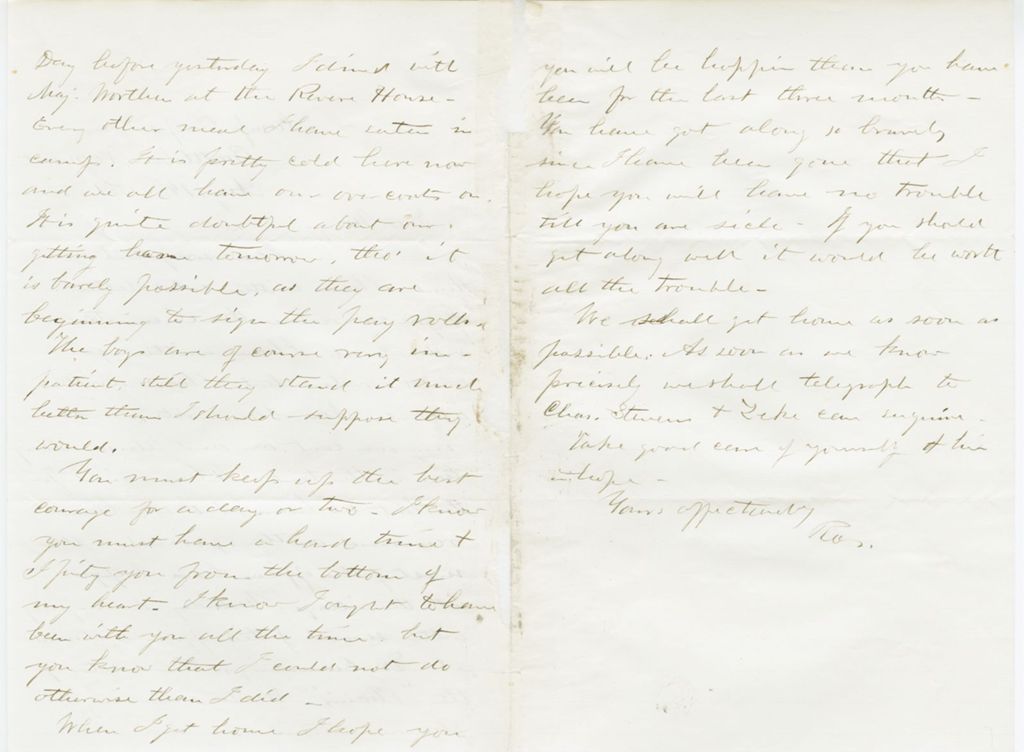 Day before yesterday I dined with
Maj. Worthen at the Revere House -
Every other meal I have eaten in
camp. It is pretty cold here now
and we all have our over-coats on.
It is quite doubtful about our
getting home tomorrow, tho' it
is barely possible, as they are
beginning to sign the pay rolls.
The boys are of course very im-
patient, still they stand it much
better than I should suppose they
would.
You must keep up the best
courage for a day or two - I know
you must have a hard time &
I pity you from the bottom of
my heart - I know I ought to have
been with you all the time but
you know that I could not do
otherwise than I did -
When I get home I hope you
you will be happier than you have
been for the last three months -
You have got along so bravely
since I have been gone that I
hope you will have no trouble
till you are sick - If you should
get along well it would be worth
all the trouble -
We shall get home as soon as
possible. As soon as we know
precisely we shall telegraph to
Chas. Stevens & Zeke can inquire -
Take good care of yourself & live
in hope -
Yours affectionately
Ros.